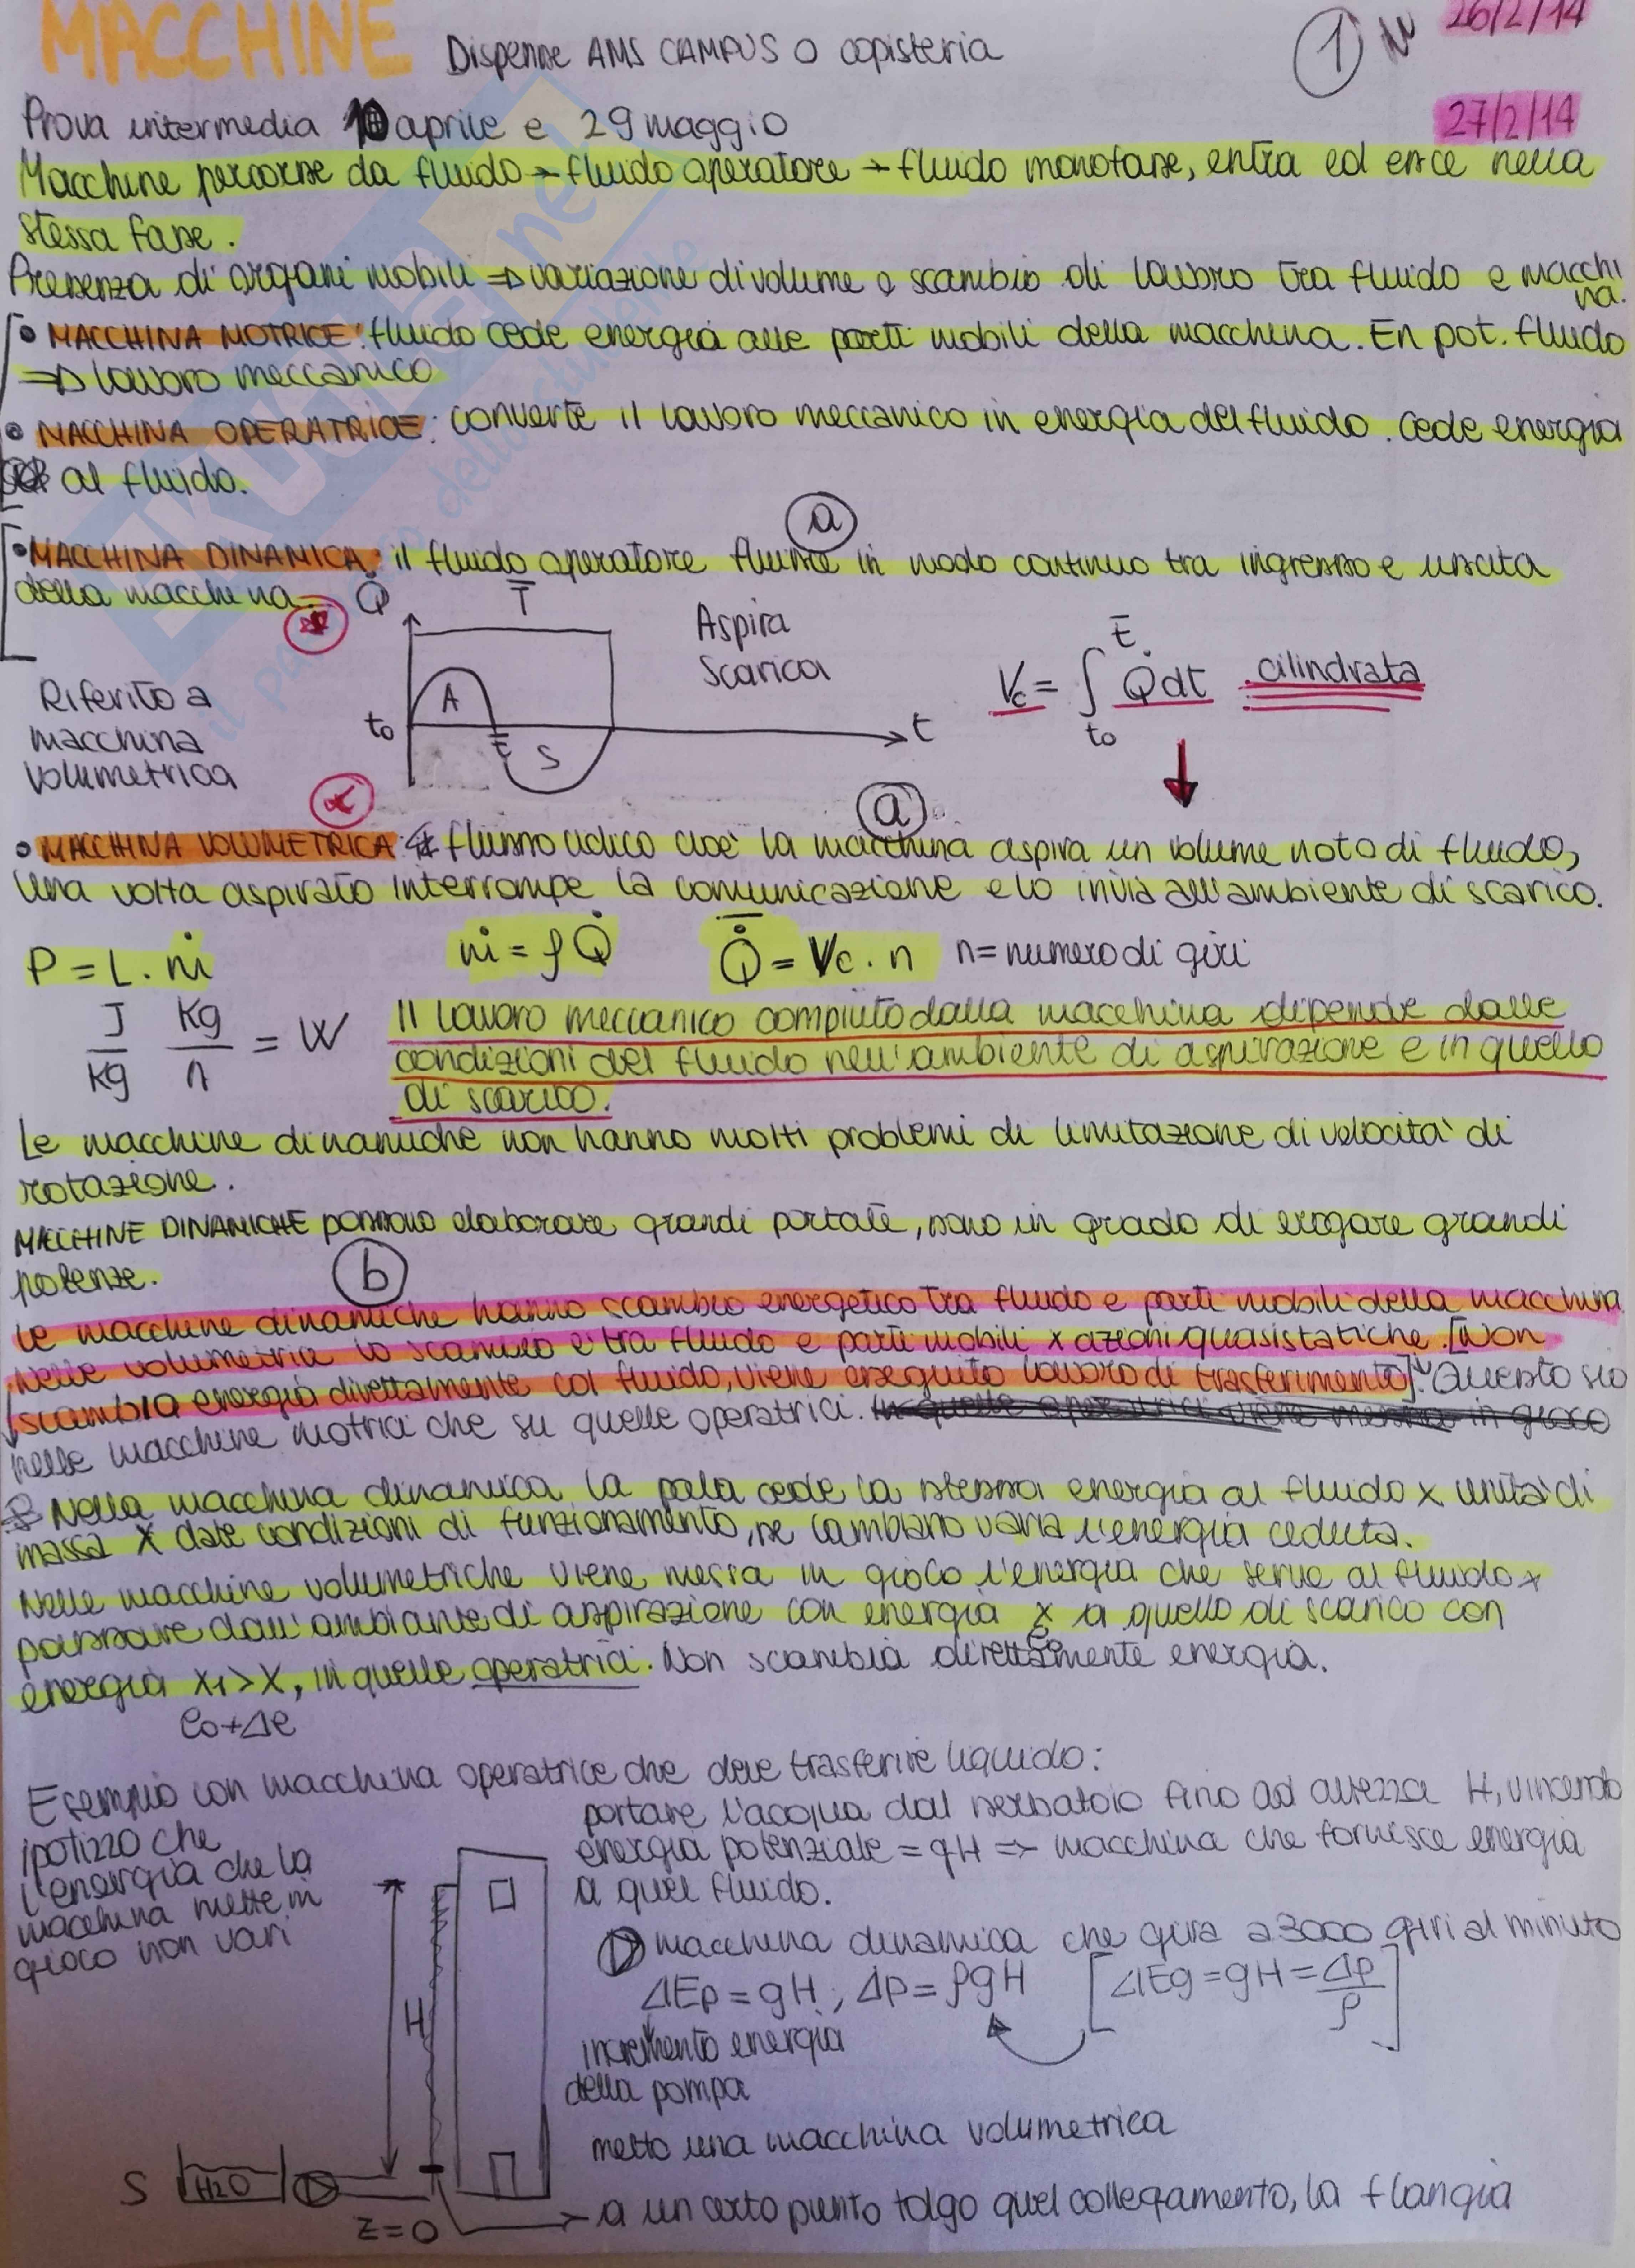 MACCHINE Dispense AMS CAMPUS o copisteria
1
26/2/14
Prova intermedia 10 aprile e 29 maggio
27/2/14
Macchine percorse da fluido → fluido operatore → fluido monofase, entra ed esce nella
stessa fase.
Presenza di organi mobili ⇒ variazione di volume e scambio di lavoro tra fluido e macchi
na.
• MACCHINA MOTRICE: fluido cede energia alle parti mobili della macchina. En pot. fluido
⇒ lavoro meccanico
• MACCHINA OPERATRICE: converte il lavoro meccanico in energia del fluido. Cede energia
al fluido.
a
• MACCHINA DINAMICA: il fluido operatore fluisce in modo continuo tra ingresso e uscita
della macchina.
Q̇
T̄
Aspira
Scarica
A
S
t₀
t̄
t
Vc = ∫ Q̇dt cilindrata
t̄
t₀
Riferito a
macchina
volumetrica
a
• MACCHINA VOLUMETRICA: flusso ciclico cioè la macchina aspira un volume noto di fluido,
una volta aspirato interrompe la comunicazione e lo invia all'ambiente di scarico.
P = L · ṁ
ṁ = ρ Q̇
Q̇ = Vc · n n = numero di giri
J/Kg Kg/s = W
Il lavoro meccanico compiuto dalla macchina dipende dalle
condizioni del fluido nell'ambiente di aspirazione e in quello
di scarico.
Le macchine dinamiche non hanno molti problemi di limitazione di velocità di
rotazione.
MACCHINE DINAMICHE possono elaborare grandi portate, sono in grado di erogare grandi
potenze.
b
Le macchine dinamiche hanno scambio energetico tra fluido e parti mobili della macchina
Nelle volumetria lo scambio è tra fluido e parti mobili x azioni quasistatiche. [Non
scambia energia direttamente col fluido, viene eseguito lavoro di trasferimento]. Questo sia
nelle macchine motrici che su quelle operatrici. In quelle operatrici viene messa in gioco
Nella macchina dinamica la pala cede la stessa energia al fluido x unità di
massa x date condizioni di funzionamento, se cambiano varia l'energia ceduta.
Nelle macchine volumetriche viene messa in gioco l'energia che serve al fluido x
passare dall'ambiante di aspirazione con energia x a quello di scarico con
e₀
energia x₁>x, in quelle operatrici. Non scambia direttamente energia.
e₀+Δe
Esempio con macchina operatrice che deve trasferire liquido:
ipotizzo che
l'energia che la
macchina mette in
gioco non vari
portare l'acqua dal serbatoio fino ad altezza H, vincendo
energia potenziale = gH => macchina che fornisce energia
a quel fluido.
macchina dinamica che gira a 3000 giri al minuto
ΔEp = gH, Δp = ρgH [ΔEg = gH = Δp/ρ]
incremento energia
della pompa
H
metto una macchina volumetrica
S H2O
z=0
a un certo punto tolgo quel collegamento, la flangia